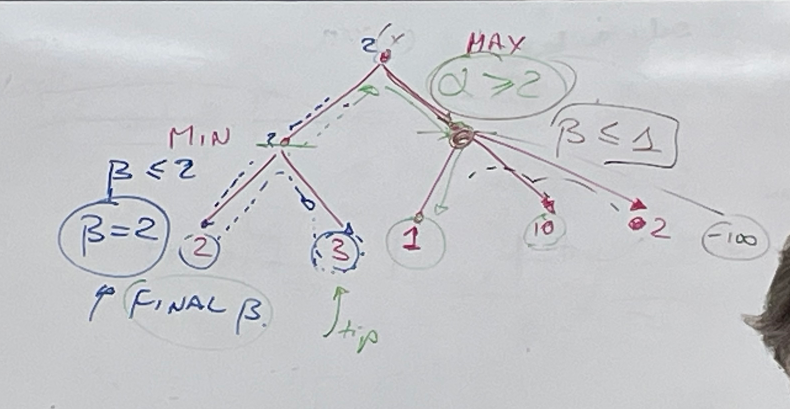 2 MAX
α ≥ 2
MIN 2
β ≤ 1
β ≤ 2
β = 2
2 3 1 10 2 -100
↑ FINAL β.
tip